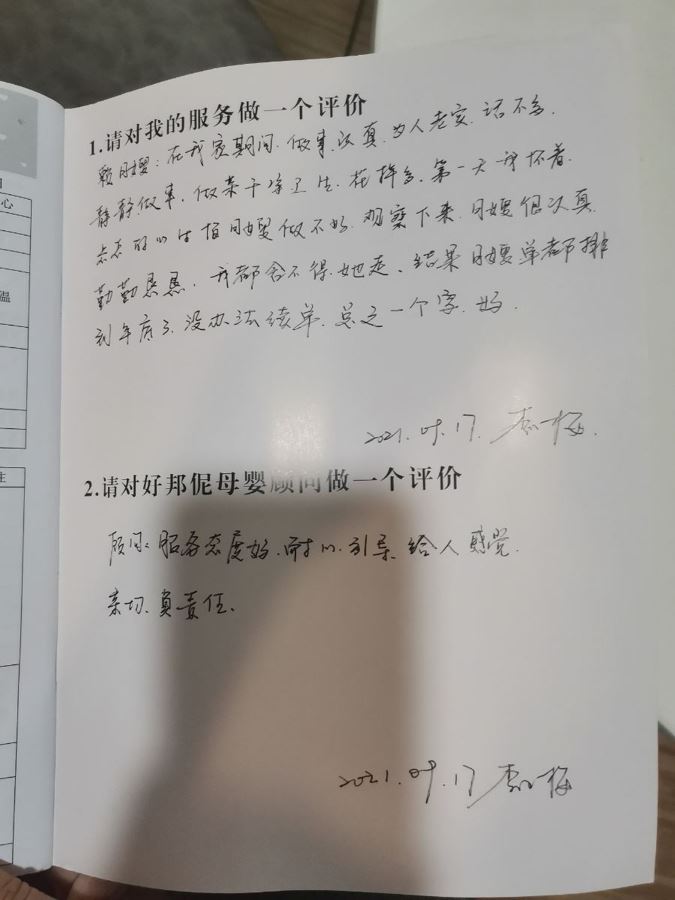 心
温
生
1.请对我的服务做一个评价
月嫂：在我家期间.做事认真.为人老实.话不多.
静静做事.做菜干净卫生.花样多.第一天我怀着
忐忑的心生怕月嫂做不好.观察下来.月嫂很认真
勤勤恳恳.我都舍不得她走.结果月嫂单都排
到年底了.没办法续单.总之一个字.好.
2021.09.17.
2.请对好邦伲母婴顾问做一个评价
顾问：服务态度好.耐心.引导.给人感觉.
亲切.负责任.
2021.09.17